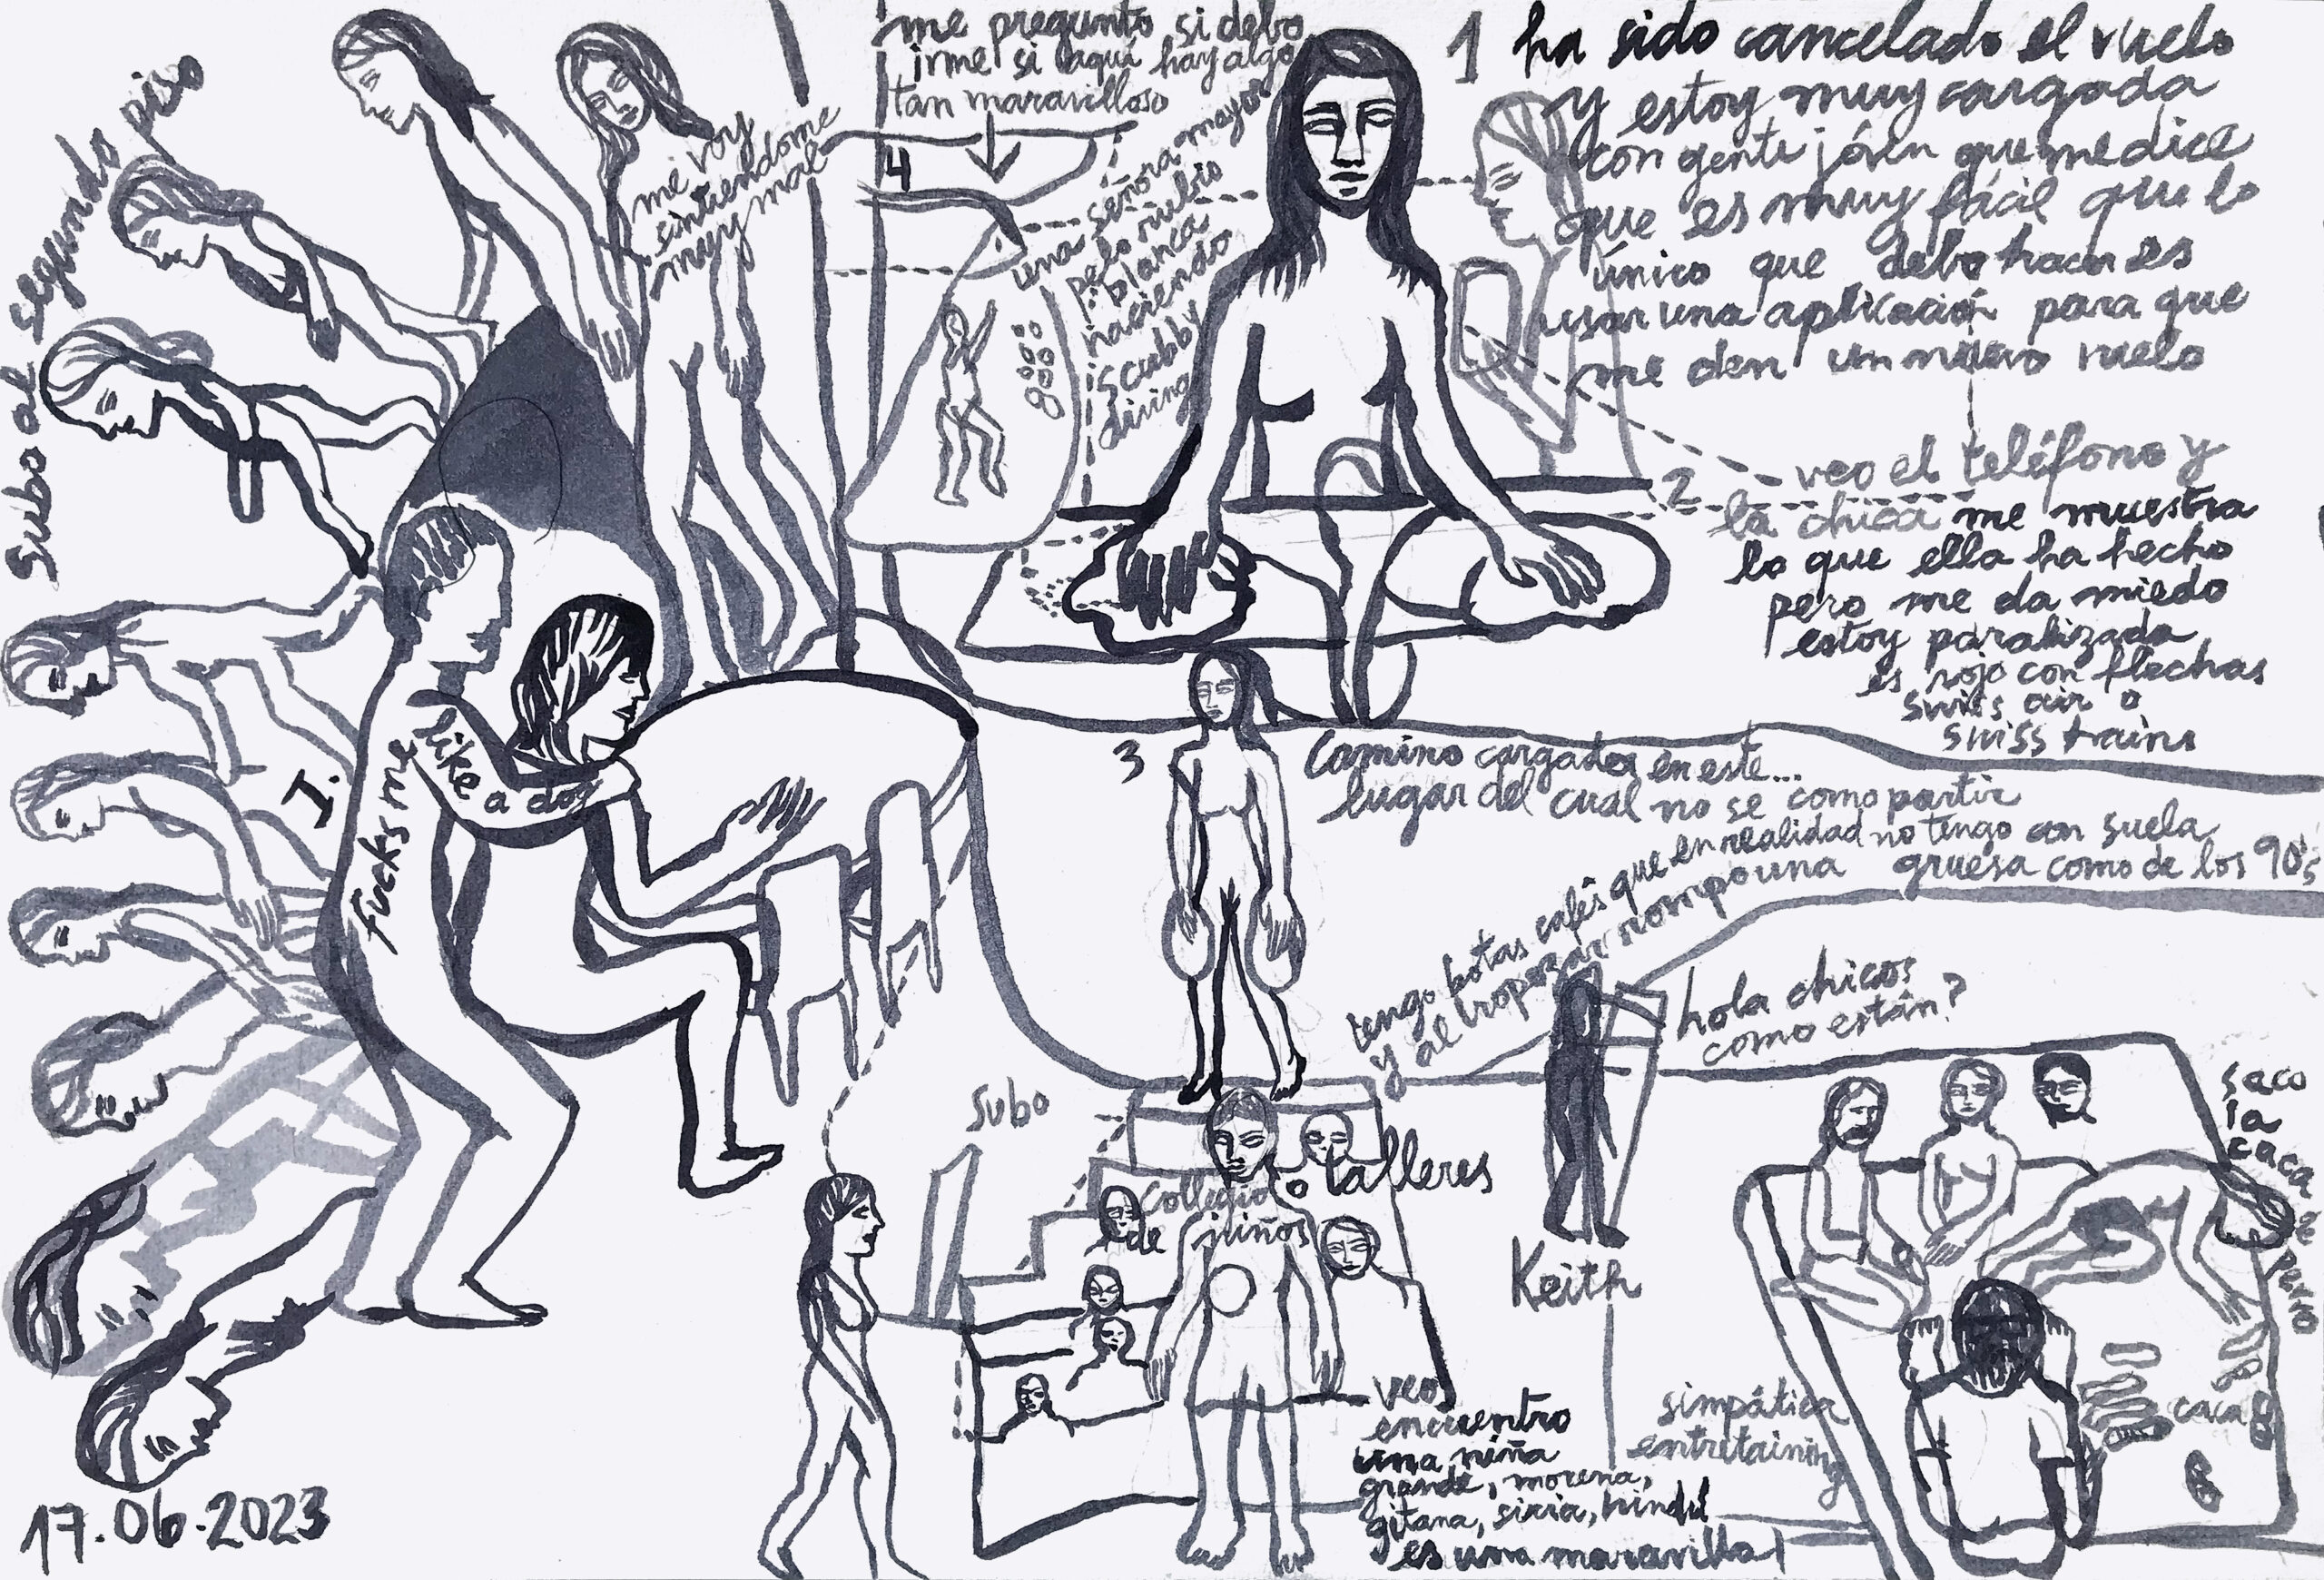 me pregunto si debo
irme si aquí hay algo
tan maravilloso
4
me voy
sintiendome
muy mal
Subo al segundo piso
una señora mayor
pelo rubio
blanca
haciendo
scubby
diving
1 ha sido cancelado el vuelo
y estoy muy cargada
con gente jóven que me dice
que es muy fácil que lo
único que debo hacer es
usar una aplicación para que
me den un nuevo vuelo
2 veo el teléfono y
la chica me muestra
lo que ella ha hecho
pero me da miedo
estoy paralizada
es rojo con flechas
swiss air o
swiss trains
3 Camino cargada en este...
lugar del cual no se como partir
tengo botas cafés que en realidad no tengo con suela
y al tropezar rompo una gruesa como de los 90's
I.
Fucks me
like a dog
hola chicos
como están?
Keith
saco
la
caca
perro
caca
simpática
entretaining
Subo
Collegio o talleres
de niños
veo
encuentro
una niña
grande, morena,
gitana, siria, hindú
es una maravilla
17.06.2023